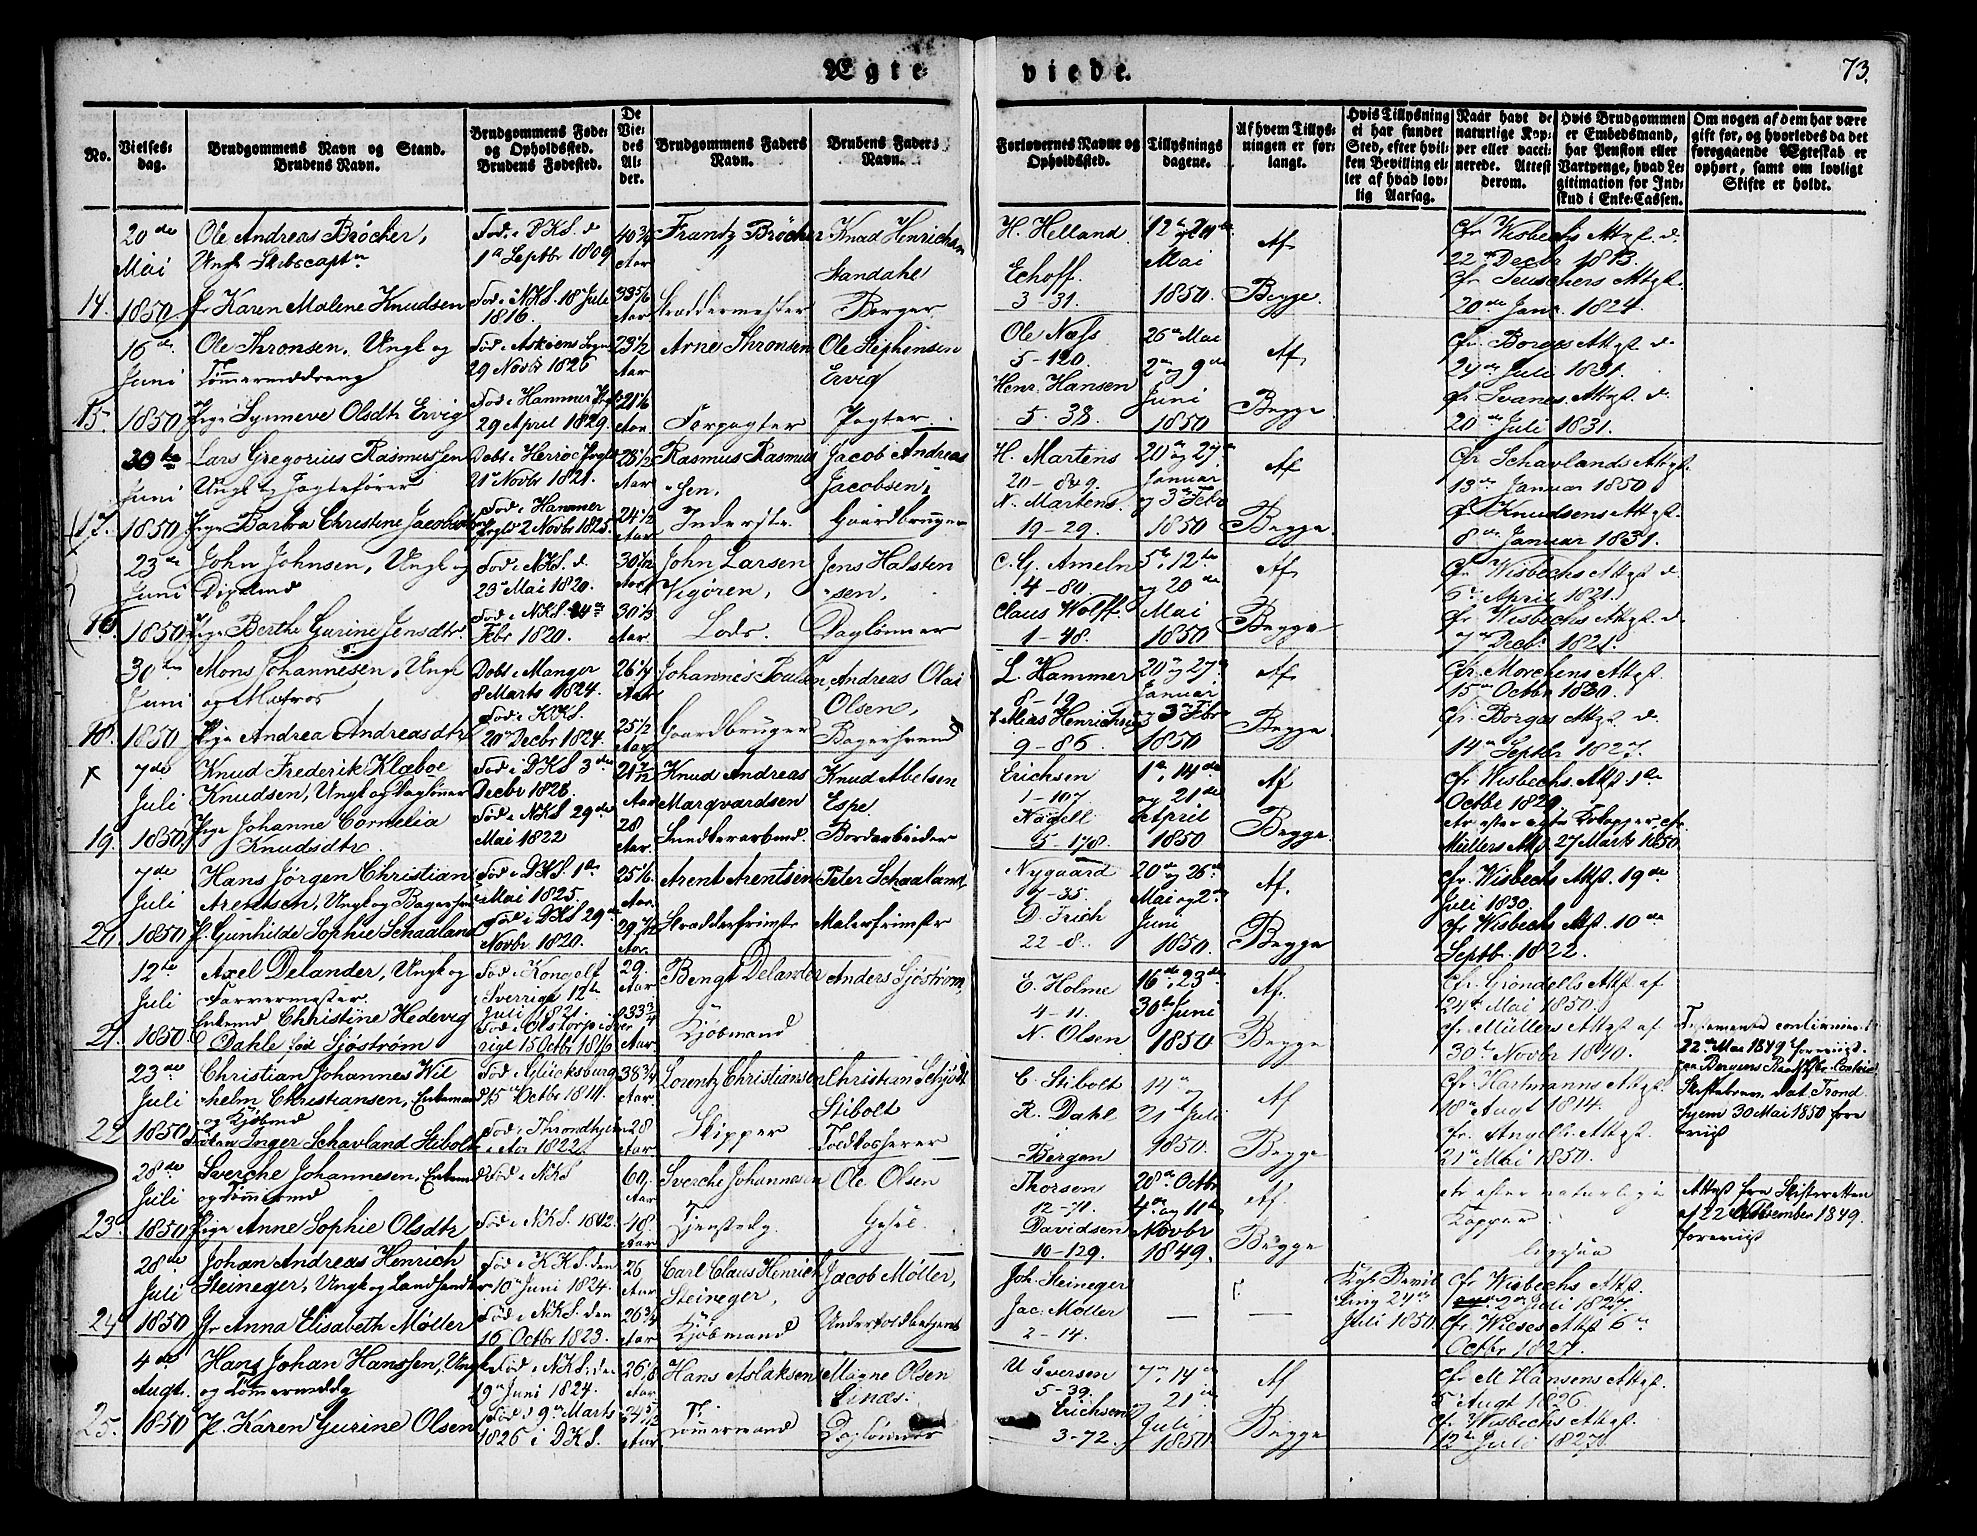 Ægte-
viede.
73.
No.
Vielses-
dag.
Brudgommens Navn og Stand.
Brudens Navn.
Brudgommens Føde-
og Opholdssted.
Brudens Fødested.
De
Vie-
des
Al-
der.
Brudgommens Faders
Navn.
Brudens Faders
Navn.
Forlovernes Navne og
Opholdssted.
Tillysnings
dagene.
Af hvem Tillys-
ningen er for-
langt.
Hvis Tillysning
ei har fundet
Sted, efter hvil-
ken Bevilling el-
ler af hvad lov-
lig Aarsag.
Naar havt de
naturlige Kop-
per eller vacci-
nerede. Attest
derom.
Hvis Brudgommen
er Embedsmand,
har Pension eller
Vartpenge, hvad Le-
gitimation for Ind-
skud i Enke-Cassen.
Om nogen af dem har være
gift før, og hvorledes da det
foregaaende Ægteskab er
ophørt, samt om lovligt
Skifte er holdt.
14.
20de
Mai
1850
Ole Andreas Bröcher,
Ungk Skibscaptn
Jfr Karen Malene Knudsen
Fød i DKS. d
1a Septbr 1809
Fød i NKS. 18 Juli
1816.
40 3/4
Aar
33 5/6
Aar
Frantz Bröcher
Skræddermester
Knud Henrichsen
Sandahl
Borger
H. Helland
Echoff.
3-31.
12te og 20de
Mai
1850.
Af
Begge.
Cfr Wisbechs Attst. d.
22 Decbr 1813.
cfr Teuschers Attst.
20de Janr 1824.
15.
16de
Juni
1850
Ole Thronsen, Ungk og
Tømmermddreng
Pige Synneve Olsdtr Ervig
Fød i Askøens Sogn
29 Novbr 1826
Fød i Hammer
29 April 1829.
23 1/2
Aar
21 1/6
Aar.
Arne Thronsen
Forpagter
Ole Stephensen
Ervig
Pagter.
Ole Næss
5-120.
Henr. Hansen
5. 38.
26de Mai
2den og 9de
Juni
1850
Af
Begge
Cfr. Borges Attst. d.
24de Juli 1831.
cfr Svanes Attst. d.
20de Juli 1831.
17.
30te
Juni
1850
Lars Gregorius Rasmussen
Ungk og Jagtefører
Pige Barbra Christine Jacobsdtr
Døbt i Herröe
21 Novbr 1821.
Fød i Hammer
2 Novbr 1825.
28 1/2
Aar
24 1/2
Aar
Rasmus Rasmus
-sen,
Inderste.
Jacob Andreas
Jacobsen,
Gaardbruger
H. Martens
20-849.
N. Martens
19-29.
20de og 27de
Januar
og 3die Febr
1850
Af
Begge
Cfr Schavlands Attst.
13de Januar 1850
cfr. Knudsens Attst.
8de Januar 1831.
16.
23de
Juni
1850
John Johnsen, Ungk og
Pige Berthe Gurine Jensdtr.
Fød i NKS. d
23de Mai 1820.
Fød i NKS 24de
Febr 1820.
30 1/12
Aar
30 1/3
Aar.
John Larsen
Vigøren,
Lods.
Jens Halsten
-sen,
Daglønner
C. G. Ameln
4-80.
Claus Wolff.
1-48.
5te, 12te
og 20de
Mai
1850
Af
Begge
cfr. Wisbechs Attst d.
6te April 1821.
cfr Wisbechs Attst. d.
7de Decbr 1821.
18.
30te
Juni
1850
Mons Johannesen, Ungk
og Matros
Pige Andrea Andreasdtr
Døbt i Manger
8 Marts 1824.
Fød i KKS.
20de Decbr 1824.
26 1/4
Aar
25 1/2
Aar
Johannes
Gaardbruger
Andreas Olai
Olsen,
Bagersvend
L. Hammer
8-19.
Mias Henrichsen
9-86.
20de og 27de
Januar
og 3die Febr
1850
Af
Begge
cfr. Morchens Attst.
15de Octbr 1830.
cfr. Borges Attst. d.
14de Septbr 1827.
19.
7de
Juli
1850
Knud Frederik Klæboe
Knudsen, Ungk og Dagløner
Pige Johanne Cornelia
Knudsdtr.
Fød i DKS 3de
Decbr 1828.
Fød i NKS 29de
Mai 1822
21 7/12
Aar
28
Aar.
Knud Andreas
Marqvardsen
Knud Abelsen
Espe,
Bordarbeider
Erichsen
1-107.
Nagell
5-178.
1te, 14de
og 21de
April
1850
Af
Begge.
cfr. Wisbechs Attst 1te
Octbr 1829
Müllers Attst. 27 Marts 1850
20.
7de
Juli
1850
Hans Jørgen Christian
Arentsen, Ungk og Bagersv
P. Gunhilde Sophie Schaaland
Fød i DKS. 1te
Mai 1825.
Fød i DKS 29de
Novbr 1820.
25 1/6.
Aar.
29 7/12
Aar.
Arent Arentsen
Skrædderfrimstr
Peter Schaaland,
Malerfrimstr
Nygaard
7-35.
D. Irich
22-8.
20de og 26de
Mai og 2de
Juni
1850.
Af.
Begge
cfr. Wisbechs Attst. 19de
Juli 1830.
cfr Wisbechs Attst. 10de
Septb. 1822.
21.
12te
Juli
1850
Axel Delander, Ungk og
Farvermester
Enkemd Christine Hedevig
Dahle født Sjöström
Fød i Kongelf
Sverrige 12te
Juli 1821.
Fød i Olstorp i Sver
rige 15 Octbr 1816
29.
Aar
33 3/4
Aar
Bengt Delander
Kjøbmand
Anders Sjöström,
E. Holme
4-11.
N. Olsen
16de, 23de
30te Juni
1850
Af.
Begge
Cfr. Gröndells Attst af
24de Mai 1850.
cfr. Müllers Attst af.
30te Novbr 1840.
22de Mai 1849 foreviist
22.
23de
Juli
1850
Christian Johannes Wil
helm Christiansen, Enkemd
og Kjøbmd
Frøken Inger Schavland Stibolt
Fød i Glücksburg
15de Octbr 1814.
Fød i Throndhjem
i Aar 1822
38 3/4
Aar
28
Aar
Lorentz Christiansen
Skipper
Christian Schjødt
Stibolt
Toldkasserer
C. Stibolt
R. Dahl
i
Bergen
14de og
21 Juli
1850.
Af
Begge
cfr. Hartmanns Attst
18de Augt 1814.
cfr. Angells Attst.
21de Mai 1850.
Skiftebrev, Dat Trond
hjem 30 Mai 1850 fore
viist
23.
28de
Juli
1850
Sverche Johannesen, Enkemd
og Tømmermd
Pige Anne Sophie Olsdtr
Fød i NKS
Fød i NKS. 1802.
60.
Aar
48.
Aar
Sverche Johannesen
Tjenstekg.
Ole Olsen
Gesel.
Thorsen
12-71.
Davidsen
10-129.
28de Octbr
4de og 11te
Novbr
1849.
Af.
Begge
Ar efter naturlige
Kopper.
ligesaa
Attest fra Skifteretten
af 22 November 1849.
foreviist
24
28de
Juli
1850
Johan Andreas Henrich
Steineger, Ungk og Landhandler
Jfr Anna Elisabeth Møller
Fød i KKS. den
10de Juni 1824.
Fød i NKS. den
16 Octbr 1823.
26
Aar
26 3/4
Aar
Carl Claus Henrich
Steineger,
Kjøbmand
Jacob Møller,
Undertoldbetjent
Joh. Steineger
Jac: Møller
2-14.
—
—
Kgl. Bevil
ling 24de
Juli 1850
cfr Wisbechs Attst.
2de Juli 1827
cfr. Wieses Attst 6te
Octbr 1827.
25.
4de
Augt.
1850
Hans Johan Hanssen, Ungk
og Tømmermddg
P. Karen Gurine Olsen
Fød i NKS. den
19de Juni 1824.
Fød 9de Marts
1826 i DKS.
26 1/8
Aar
24 5/12
Aar
Hans Aslaksen
Tømmermand
Magne Olsen
Einæs.
Daglønner
U Iversen
5-39.
Erichsen
3-72.
7de, 14de
21de
Juli
1850
Af
Begge
cfr. M Hansens Attst.
5te Augt 1826.
cfr Wisbechs Attst.
12te Juli 1827.